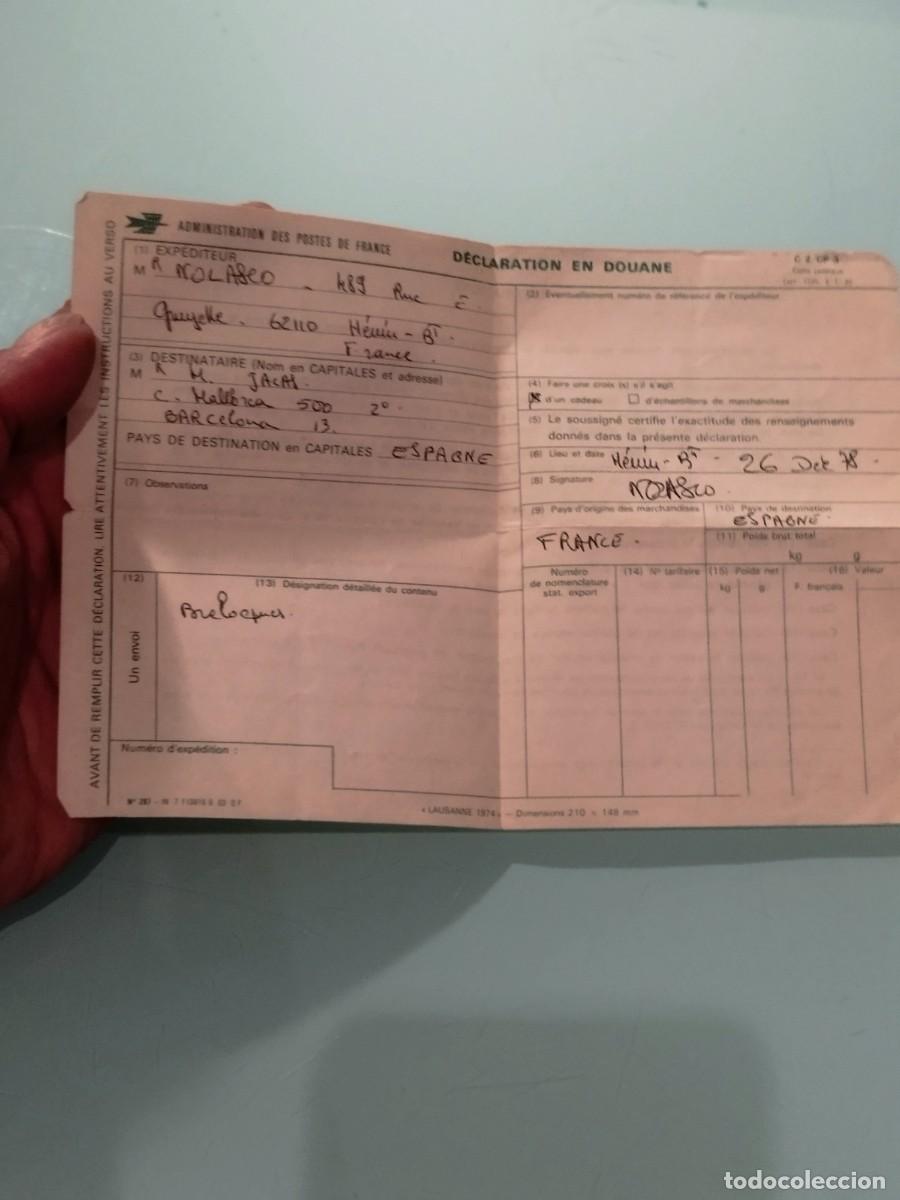 AVANT DE REMPLIR CETTE DÉCLARATION, LIRE ATTENTIVEMENT LES INSTRUCTIONS AU VERSO
ADMINISTRATION DES POSTES DE FRANCE
DÉCLARATION EN DOUANE
C 2 / CP 3
(1) EXPÉDITEUR
MR NOLASCO - 489 Rue E.
62110 Hénin-BT.
France.
(2) Eventuellement numéro de référence de l'expéditeur
(3) DESTINATAIRE (Nom en CAPITALES et adresse)
MR M. JACAS.
C. Mallorca 500 2º
BARCelona 13.
PAYS DE DESTINATION en CAPITALES ESPAGNE
(4) Faire une croix (x) s'il s'agit
x d'un cadeau d'échantillons de marchandises
(5) Le soussigné certifie l'exactitude des renseignements
donnés dans la présente déclaration.
(6) Lieu et date Hénin-BT - 26 Dec 78.
(7) Observations
(8) Signature NOLASCO.
(9) Pays d'origine des marchandises
FRANCE.
(10) Pays de destination
ESPAGNE.
(11) Poids brut total
kg g
(12)
Un envoi
(13) Désignation détaillée du contenu
Breloques.
Numéro
de nomenclature
stat. export
(14) N° tarifaire
(15) Poids net
kg g
(16) Valeur
F. français
Numéro d'expédition :
N° 287
« LAUSANNE 1974 » - Dimensions 210 x 148 mm
todocoleccion